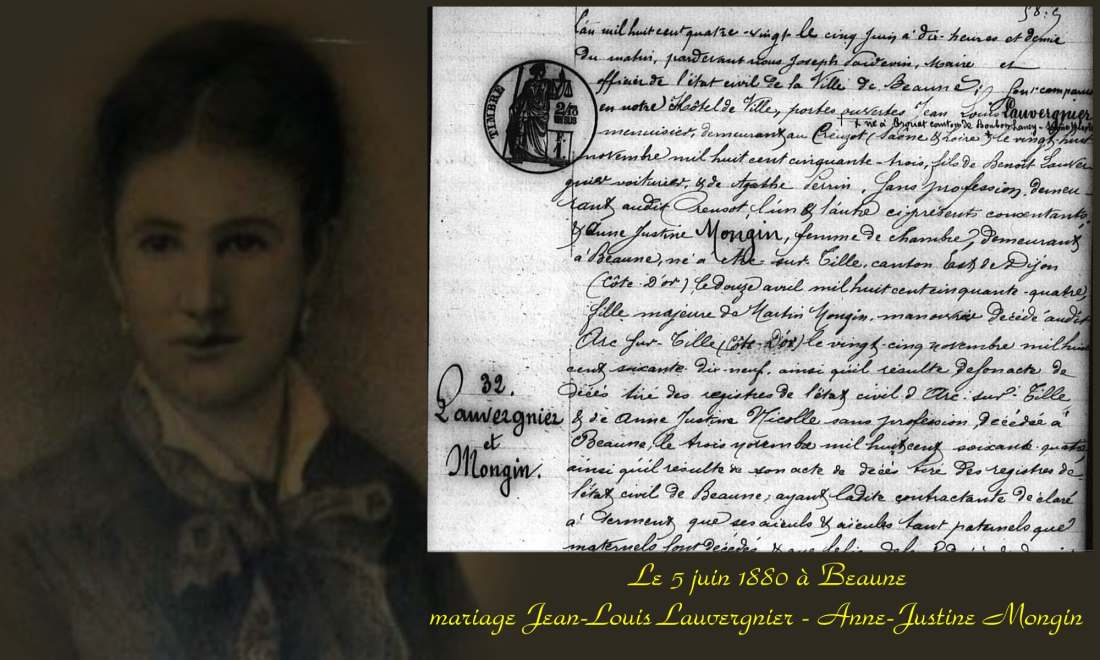 L'an mil huit cent quatre-vingt le cinq Juin à dix heures et demie
du matin, pardevant nous Joseph , Maire et
officier de l'état civil de la Ville de Beaune, sont comparus
en notre Hôtel de Ville, portes ouvertes Jean Louis Lauvergnier
né à canton de Bourbon Lancy
menuisier, demeurant au Creuzot (Saône & Loire) le vingt huit
novembre mil huit cent cinquante-trois, fils de Benoît Lauver
gnier voiturier, & de Agathe Perrin, sans profession, demeu
rant audit Creusot l'un & l'autre ci-présents consentants
& Anne Justine Mongin, femme de chambre, demeurant
à Beaune, né à Arc-sur-Tille, canton Est de Dijon
(Côte-D'or), le douze avril mil huit cent cinquante-quatre,
fille majeure de Martin Mongin, manouvrier décédé audit
Arc sur-Tille (Côte-D'or) le vingt-cinq novembre mil huit
cent soixante dix-neuf, ainsi qu'il résulte de son acte de
décès tiré des registres de l'état civil d'Arc-sur-Tille
& de Anne Justine Nicolle sans profession, décédée à
Beaune, le trois novembre mil huit cent soixante-quatre
ainsi qu'il résulte de son acte de décès tiré des registres de
l'état civil de Beaune; ayant ladite contractante déclaré
à serment que ses aïeuls & aïeules tant paternels que
maternels sont décédés & que
TIMBRE
32.
Lauvergnier
et
Mongin.
Le 5 juin 1880 à Beaune
mariage Jean-Louis Lauvergnier - Anne-Justine Mongin